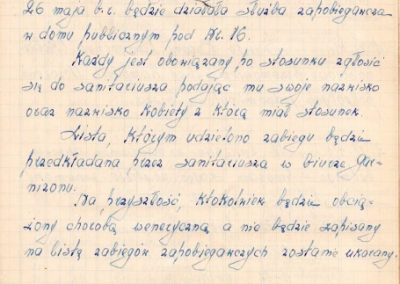 26 maja b.r. będzie działała służba zapobiegawcza
w domu publicznym pod Nr. 16.
Każdy jest obowiązany po stosunku zgłosić
się do sanitariusza podając mu swoje nazwisko
oraz nazwisko kobiety z którą miał stosunek.
Lista, którym udzielono zabiegu będzie
przedkładana przez sanitariusza w biurze Gar-
nizonu.
Na przyszłość, ktokolwiek będzie obcią-
żony chorobą weneryczną a nie będzie zapisany
na listę zabiegów zapobiegawczych zostanie ukarany.